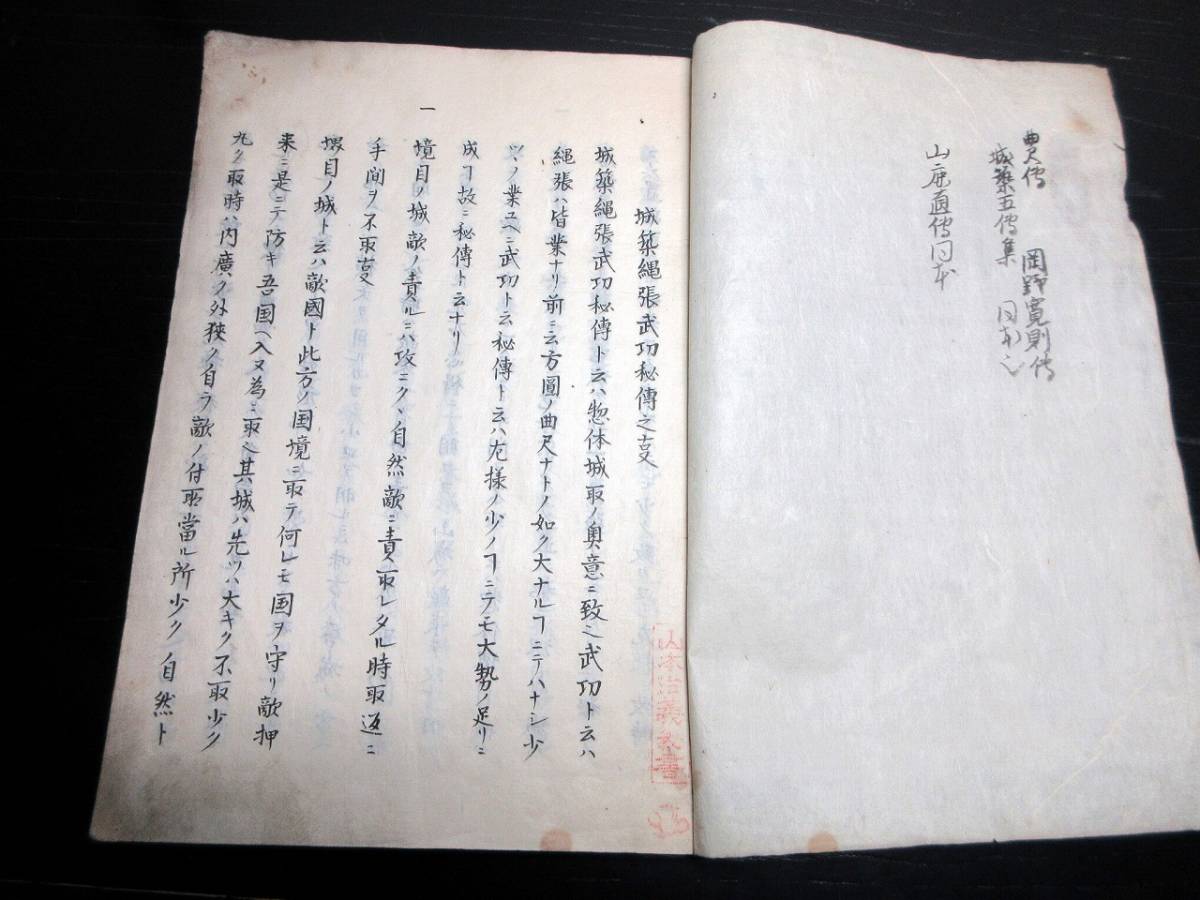 貫傳 岡野寛則傳
城築五傳集 同本也
山鹿直傳同本
城築縄張武功秘傳之㕝
城築縄張武功秘傳ト云ハ惣体城取ノ奥意ニ致也武功ト云ハ
縄張ハ皆業ナリ前ニ云方圓ノ曲尺ナトノ如ク大ナルヿニテハナシ少
ツヽノ業ユヘニ武功ト云秘傳ト云ハ左様ノ少ノヿニテモ大勢ノ足リニ
成ヿ故ニ秘傳ト云ナリ
一 境目ノ城敵ノ責ルニハ攻ニクヽ自然敵ニ責取レタル時取返ニ
手間ヲ不取㕝
堺目ノ城ト云ハ敵國ト此方ノ国境ニ取テ何レモ国ヲ守リ敵押
来ニ是ニテ防キ吾国ヘ入又為ニ取也其城ハ先ツハ大キク不取少ク
丸ク取時ハ内廣ク外狹ク自ラ敵ノ付所當ル所少ク自然ト